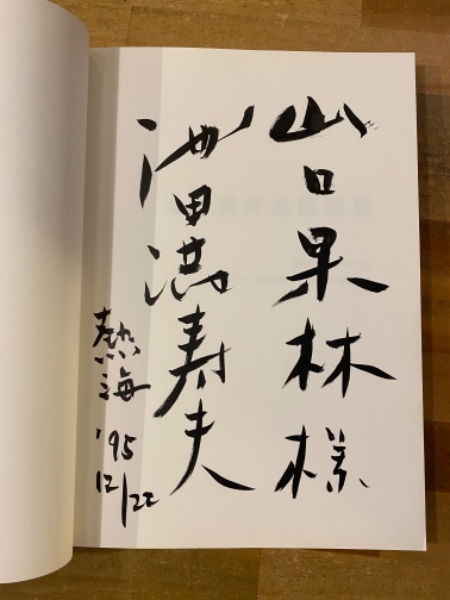 山口果林様
池田満寿夫
熱海
'95
12/22